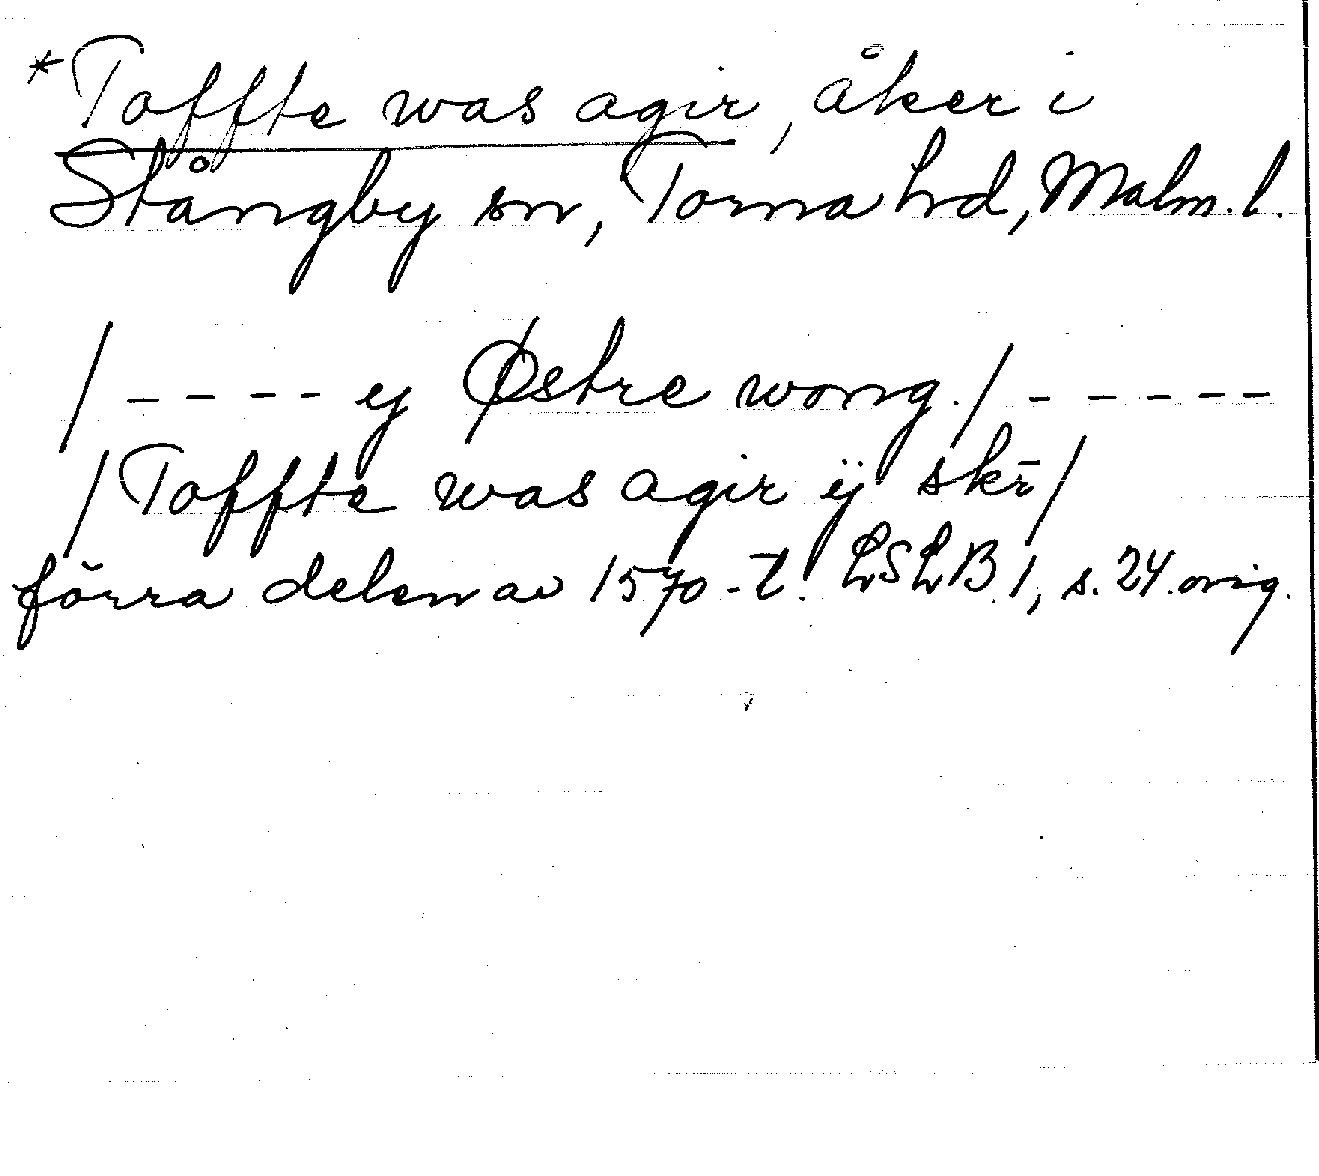 *Toffte was agir, åker i
Stångby sn, Torna hd, Malm. l.
/ - - - - ey Østre wong. / - - - - -
/ Toffte was agir ÿ skr̄ /
förra delen av 1570-t. LSLB 1, s. 24. orig.